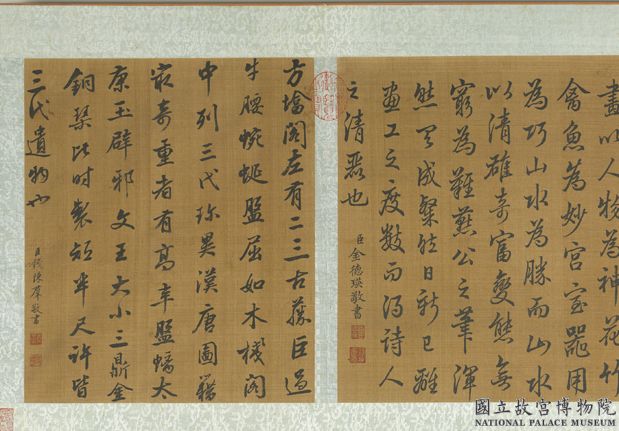 畫以人物為神花竹
禽魚為妙宮室器用
為巧山水為勝而山水
以清雄奇富變態無
窮為難燕公之筆渾
然天成粲然日新已離
畫工之度數而得詩人
之清麗也
臣金德瑛敬書
方墖閣左有二三古藤巨過
牛腰蜿蜒盤屈如木棧閣
中列三代珍異漢唐圖籍
最奇重者有高辛盤太
康玉辟邪文王大小三鼎金
銅琹此時製短半尺許皆
三代遺物也
臣錢陳羣敬書
國立故宮博物院
NATIONAL PALACE MUSEUM